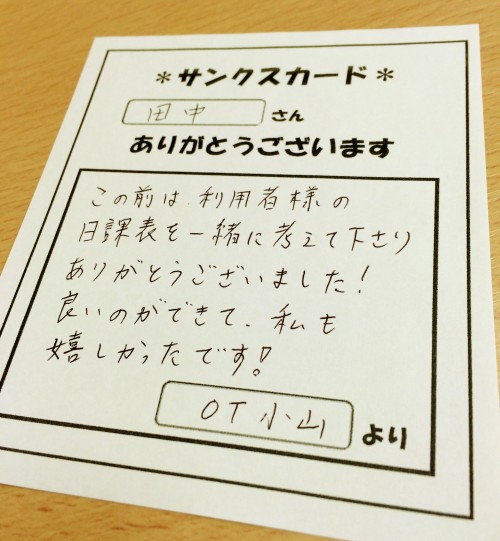 ＊サンクスカード＊
田中 さん
ありがとうございます
この前は、利用者様の
日課表を一緒に考えて下さり
ありがとうございました!
良いのができて、私も
嬉しかったです!
OT小山 より